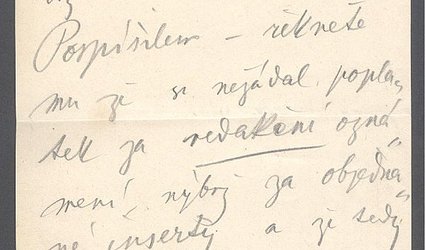 Pospíšilem – řekněte
mu že si nežádal popla„
tek za redakční ozná„
mení nýbrž za objedna„
né inserty a že tedy